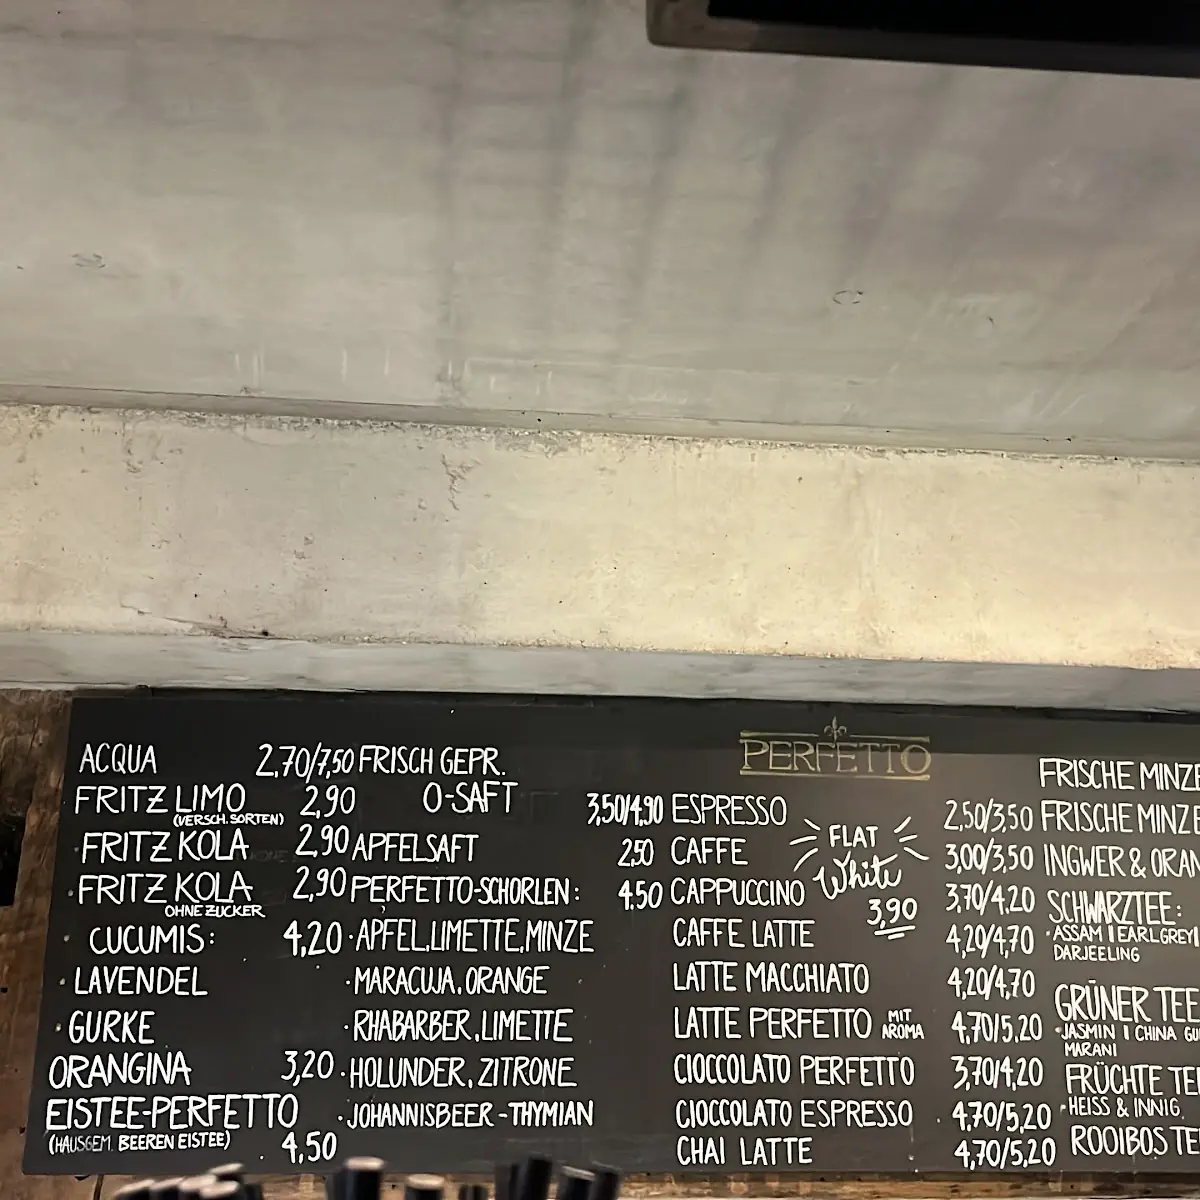 ACQUA 2,70/7,50
FRITZ LIMO 2,90
(VERSCH. SORTEN)
FRITZ KOLA 2,90
FRITZ KOLA 2,90
OHNE ZUCKER
CUCUMIS: 4,20
· LAVENDEL
· GURKE
ORANGINA 3,20
EISTEE-PERFETTO
(HAUSGEM. BEEREN EISTEE) 4.50
FRISCH GEPR.
O-SAFT 3,50/4,90
APFELSAFT 2,50
PERFETTO-SCHORLEN: 4.50
· APFEL, LIMETTE, MINZE
· MARACUJA, ORANGE
· RHABARBER, LIMETTE
· HOLUNDER, ZITRONE
· JOHANNISBEER - THYMIAN
PERFETTO
ESPRESSO 2,50/3,50
CAFFE 3,00/3,50
CAPPUCCINO 3,70/4,20
CAFFE LATTE 4,20/4,70
LATTE MACCHIATO 4,20/4,70
LATTE PERFETTO MIT AROMA 4,70/5,20
CIOCCOLATO PERFETTO 3,70/4,20
CIOCCOLATO ESPRESSO 4,70/5,20
CHAI LATTE 4,70/5,20
FLAT
White
3,90
FRISCHE MINZE
FRISCHE MINZE
INGWER & ORAN
SCHWARZTEE:
· ASSAM | EARL GREY |
DARJEELING
GRÜNER TEE
· JASMIN | CHINA GU
MARANI
FRÜCHTE TE
· HEISS & INNIG
ROOIBOS TE